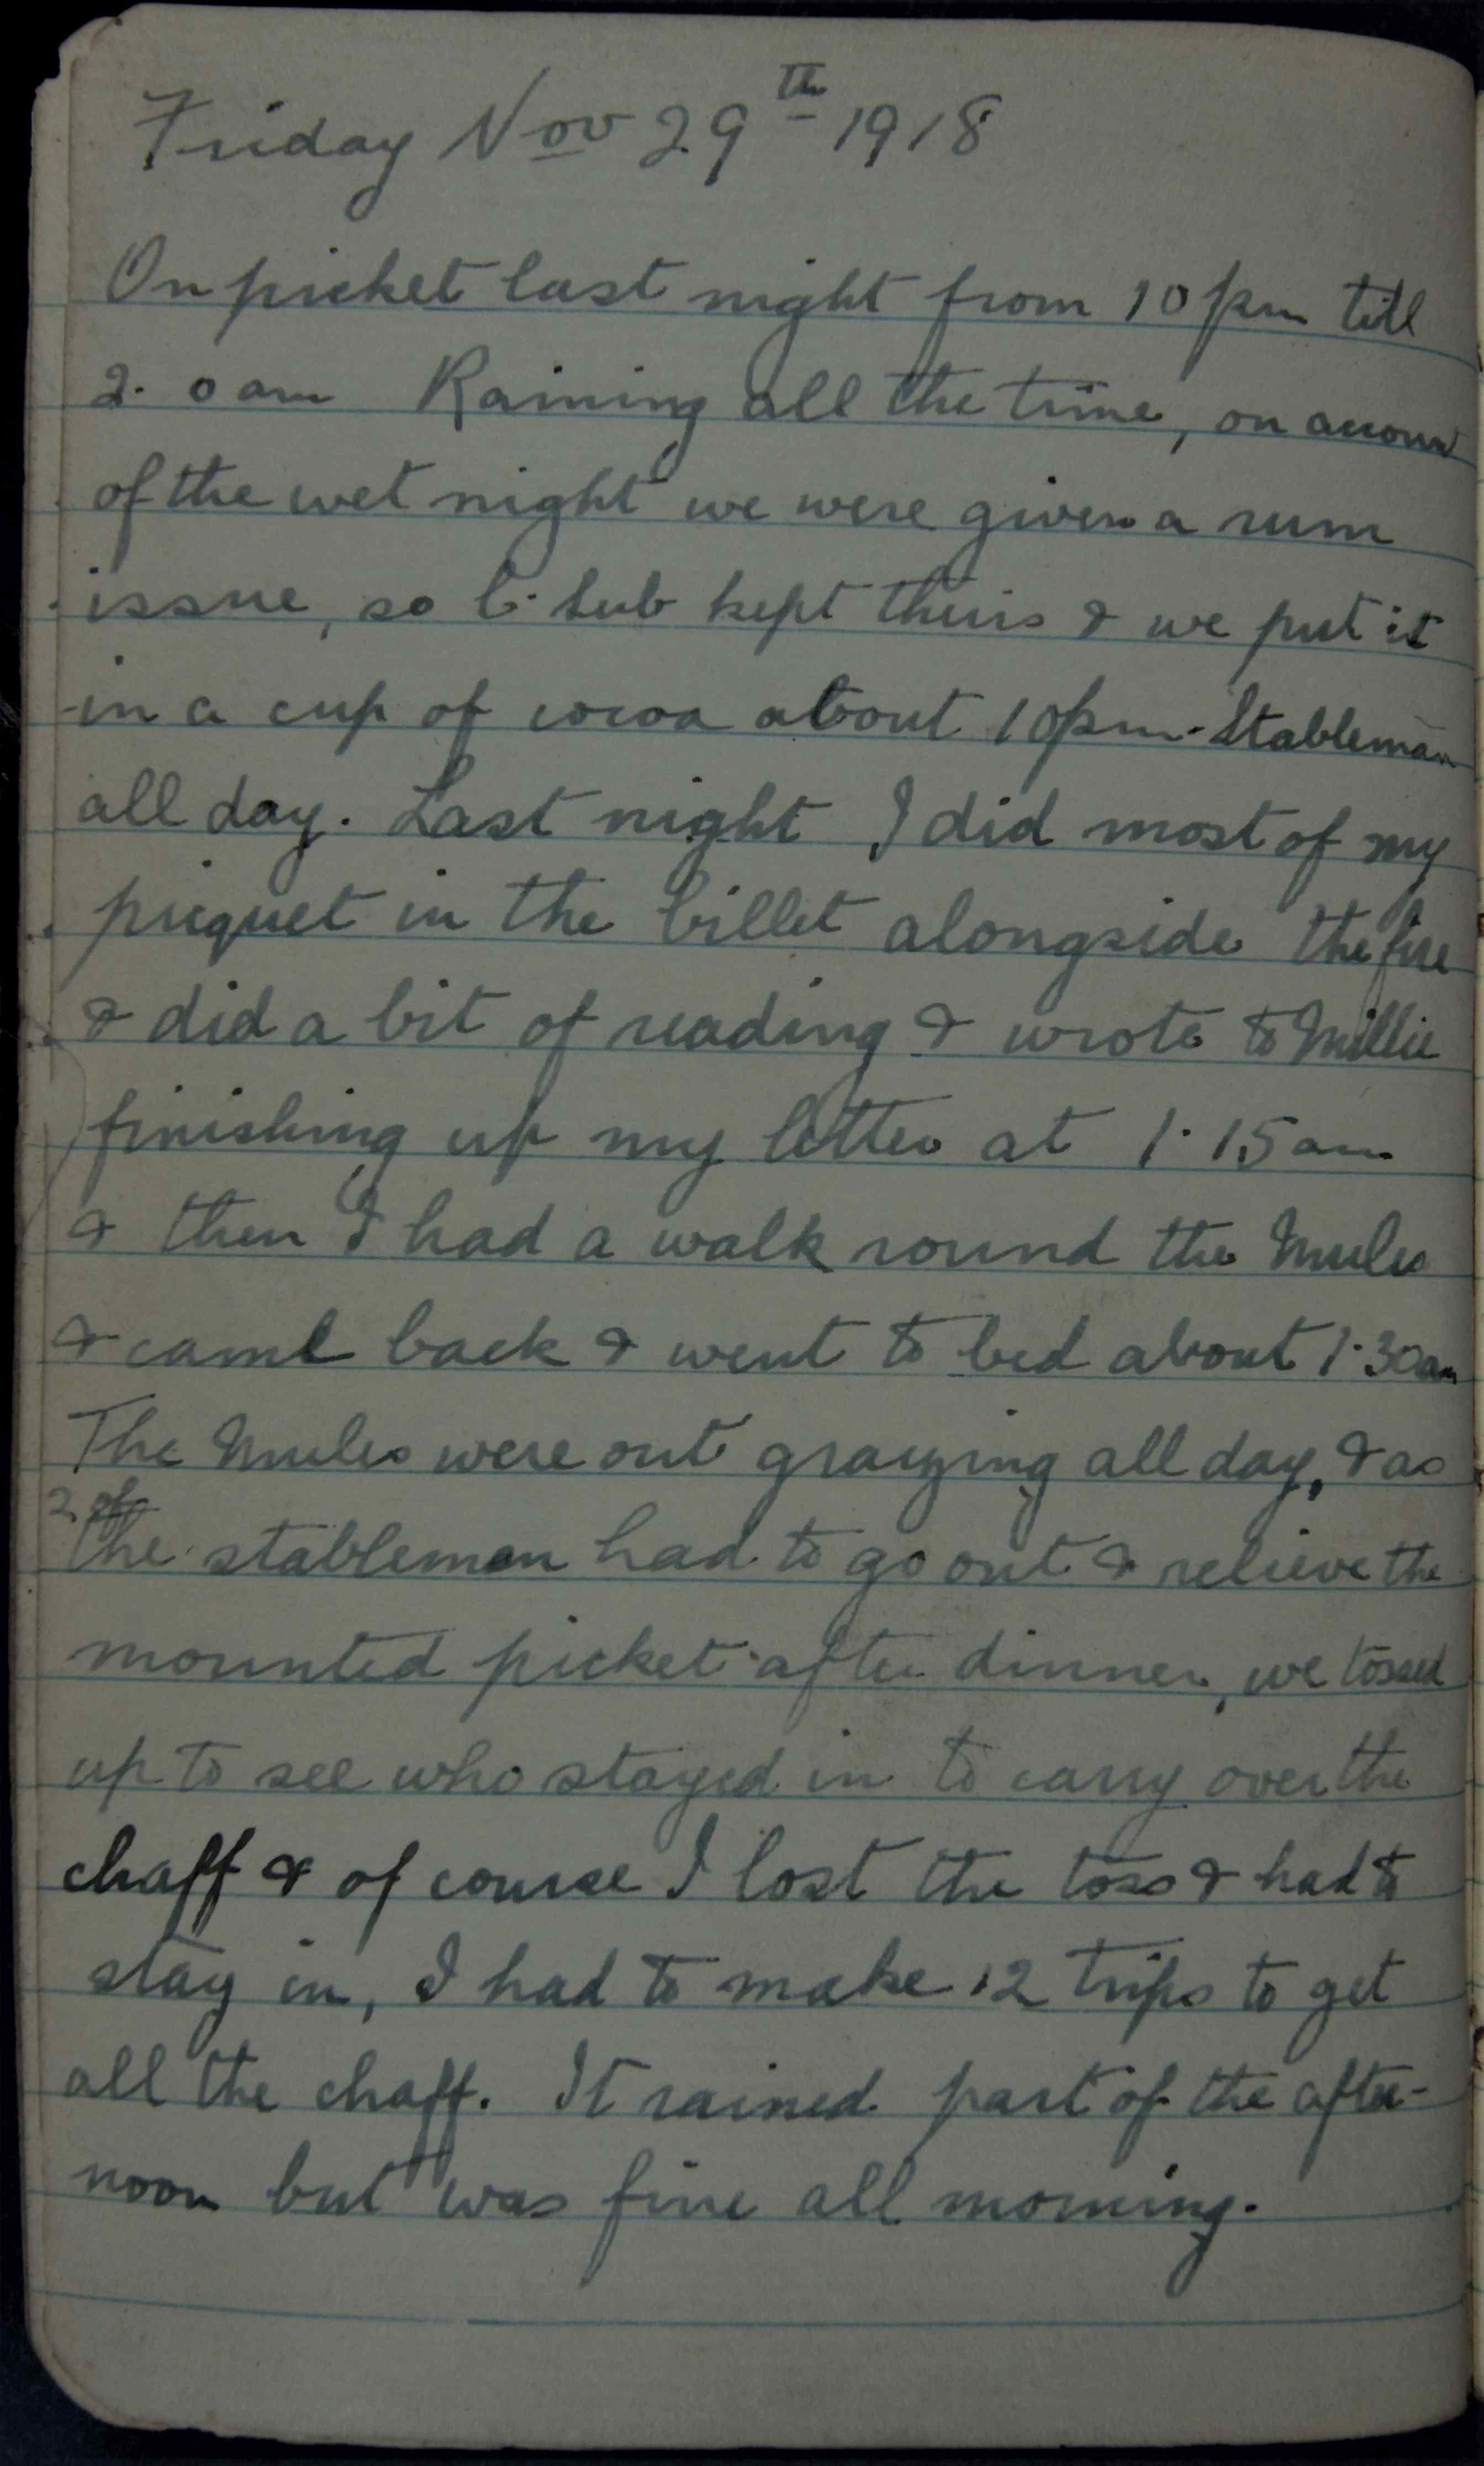 Friday Nov 29th 1918
On picket last night from 10 pm till
2. 0 am Raining all the time, on account
of the wet night we were given a rum
issue, so C. Sub kept theirs & we put it
in a cup of cocoa about 10pm. Stableman
all day. Last night I did most of my
picquet in the billet alongside the fire
& did a bit of reading & wrote to Millie
finishing up my letter at 1.15 am
& then I had a walk round the Mules
& came back & went to bed about 1.30am
The Mules were out grazing all day, & as
2 of
the stableman had to go out & relieve the
mounted picket after dinner, we tossed
up to see who stayed in to carry over the
chaff & of course I lost the toss & had to
stay in, I had to make 12 trips to get
all the chaff. It rained part of the after-
noon but was fine all morning.